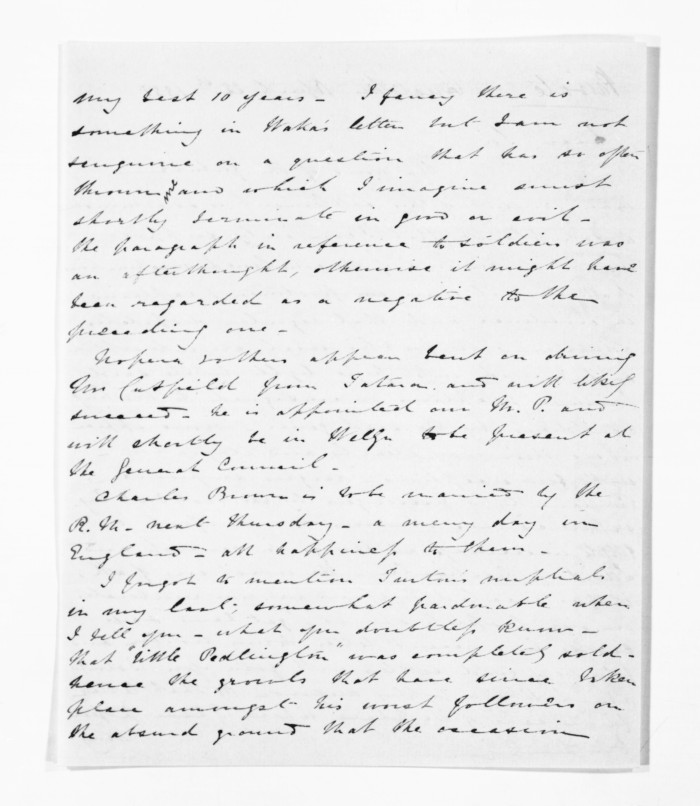 my last 10 years - I fancy there is
something in Waka's letter but I am not
sanguine on a question that has so often
thrown and which I imagine must
shortly terminate in good or evil -
the paragraph in reference to soldiers was
an afterthought, otherwise it might have
been regarded as a negative to the
preceding one -
others appear bent on driving
Mr Cutfield from Tataraimaka and will likely
succeed - he is appointed our M. P. and
will shortly be in Welgn to be present at
the General Council -
Charles Brown is to be married by the
R. M. next Thursday - a merry day in
England - all happiness to them -
I forgot to mention Turton's nuptials
in my last; somewhat pardonable when
I tell you - what you doubtless know -
that "little Pedlington" was completely sold -
hence the growls that have since taken
place amongst his worst followers on
the absurd ground that the occasion